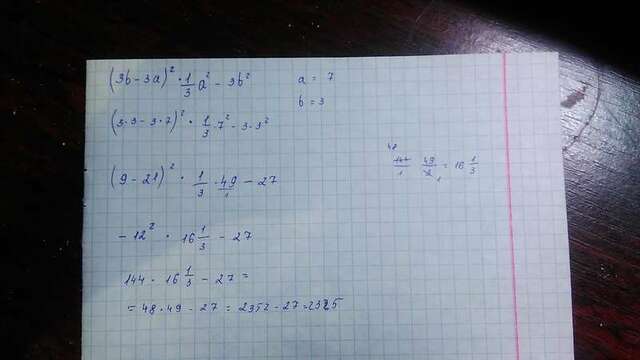 (3b - 3a)² · 1/3 a² - 3b²
a = 7
b = 3
(3·3 - 3·7)² · 1/3 · 7² - 3·3²
(9 - 21)² · 1/3 · 49/1 - 27
48
144/1 49/3 1 = 16 1/3
- 12² · 16 1/3 - 27
144 · 16 1/3 - 27 =
= 48 · 49 - 27 = 2352 - 27 = 2325